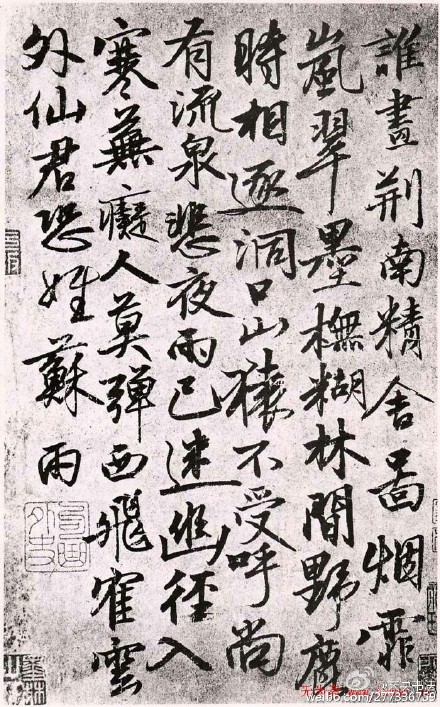 誰畫荆南精舍啚烟霏
嵐翠墨橅糊林間野鹿
時相逐洞口山猿不受呼尚
有流泉悲夜雨已迷幽徑入
寒蕪癡人莫彈西飛寉雲
外仙君恐姓蘇 雨